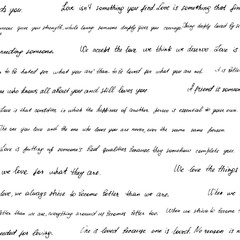 ds you. Love isn't something you find. Love is something that finds
someone gives you strength, while loving someone deeply gives you courage. Being deeply loved by
needing someone. We accept the love we think we deserve. Love is
to be hated for what you are than to be loved for what you are not. It is better
who knows all about you and still loves you. A friend is someone
Love is that condition in which the happiness of another person is essential to your own.
The one you love and the one who loves you are never, ever the same person.
Love is putting of someone's bad qualities because they somehow complete you.
we love for what they are. We love the things
love, we always strive to become better than we are. When we
better than we are, everything around us becomes better too. When we strive to become
needed for loving. One is loved because one is loved. No reason is n